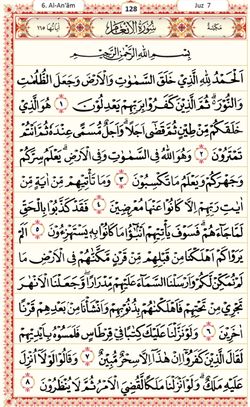 6. Al-An'âm 128 Juz 7
مَكِّيَّة سُوْرَةُ الْاَنْعَامِ اٰيَاتُهَا ١٦٥
بِسْمِ اللّٰهِ الرَّحْمٰنِ الرَّحِيْمِ
اَلْحَمْدُ لِلّٰهِ الَّذِيْ خَلَقَ السَّمٰوٰتِ وَالْاَرْضَ وَجَعَلَ الظُّلُمٰتِ
وَالنُّوْرَ ثُمَّ الَّذِيْنَ كَفَرُوْا بِرَبِّهِمْ يَعْدِلُوْنَ ١ هُوَ الَّذِيْ
خَلَقَكُمْ مِّنْ طِيْنٍ ثُمَّ قَضٰٓى اَجَلًا وَاَجَلٌ مُّسَمًّى عِنْدَهٗ ثُمَّ اَنْتُمْ
تَمْتَرُوْنَ ٢ وَهُوَ اللّٰهُ فِى السَّمٰوٰتِ وَفِى الْاَرْضِ يَعْلَمُ سِرَّكُمْ
وَجَهْرَكُمْ وَيَعْلَمُ مَا تَكْسِبُوْنَ ٣ وَمَا تَأْتِيْهِمْ مِّنْ اٰيَةٍ مِّنْ
اٰيٰتِ رَبِّهِمْ اِلَّا كَانُوْا عَنْهَا مُعْرِضِيْنَ ٤ فَقَدْ كَذَّبُوْا بِالْحَقِّ
لَمَّا جَاۤءَهُمْ فَسَوْفَ يَأْتِيْهِمْ اَنْۢبٰۤؤُا مَا كَانُوْا بِهٖ يَسْتَهْزِءُوْنَ
٥ اَلَمْ يَرَوْا كَمْ اَهْلَكْنَا مِنْ قَبْلِهِمْ مِّنْ قَرْنٍ مَّكَّنّٰهُمْ فِى الْاَرْضِ مَا
لَمْ نُمَكِّنْ لَّكُمْ وَاَرْسَلْنَا السَّمَاۤءَ عَلَيْهِمْ مِّدْرَارًا وَّجَعَلْنَا الْاَنْهٰرَ
تَجْرِيْ مِنْ تَحْتِهِمْ فَاَهْلَكْنٰهُمْ بِذُنُوْبِهِمْ وَاَنْشَأْنَا مِنْۢ بَعْدِهِمْ قَرْنًا
اٰخَرِيْنَ ٦ وَلَوْ نَزَّلْنَا عَلَيْكَ كِتٰبًا فِيْ قِرْطَاسٍ فَلَمَسُوْهُ بِاَيْدِيْهِمْ
لَقَالَ الَّذِيْنَ كَفَرُوْٓا اِنْ هٰذَٓا اِلَّا سِحْرٌ مُّبِيْنٌ ٧ وَقَالُوْا لَوْلَٓا اُنْزِلَ
عَلَيْهِ مَلَكٌ وَلَوْ اَنْزَلْنَا مَلَكًا لَّقُضِيَ الْاَمْرُ ثُمَّ لَا يُنْظَرُوْنَ ٨